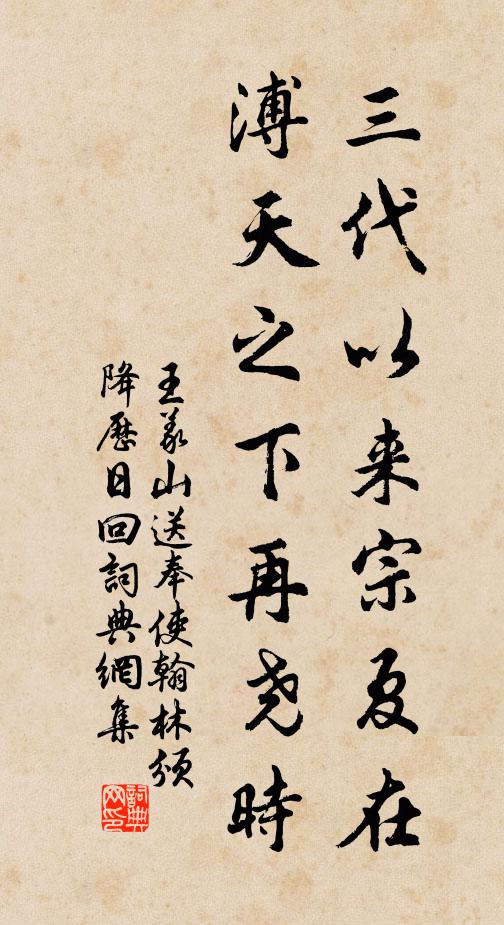 三代以来宗夏在
溥天之下再尧時
王義山送奉使翰林頒
降歷日回詞典網集
詞典网印